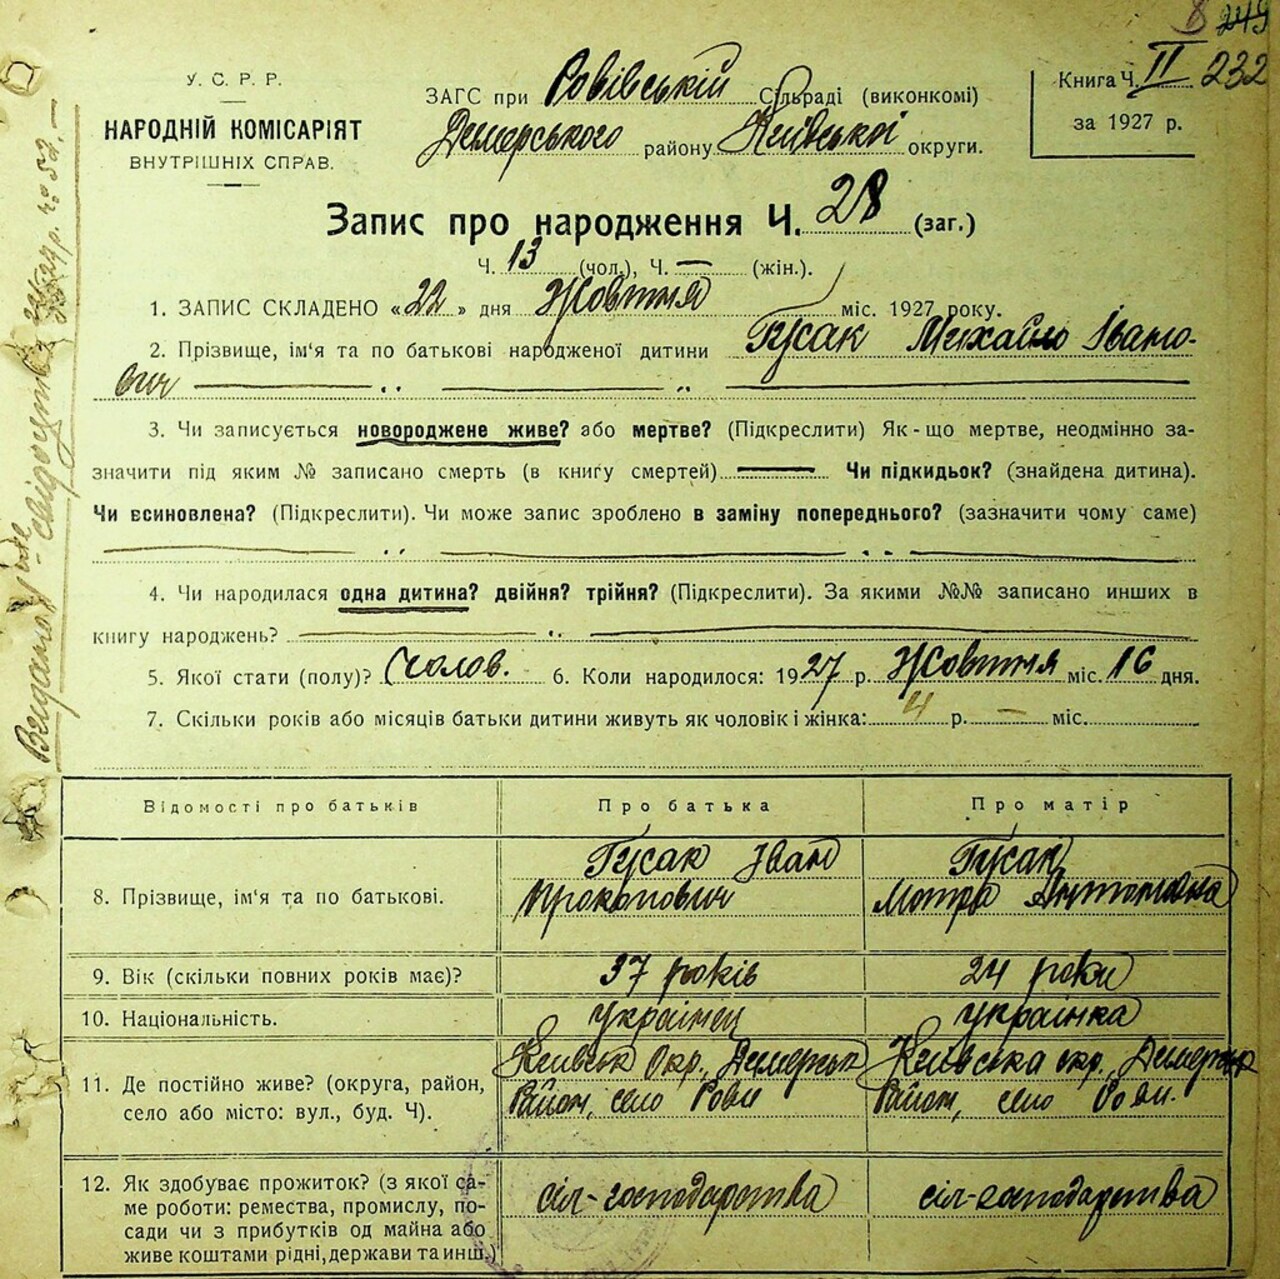 249
У. С. Р. Р.
НАРОДНІЙ КОМІСАРІЯТ
ВНУТРІШНІХ СПРАВ.
ЗАГС при Ровівській Сільраді (виконкомі)
Демерського району Київської округи.
Книга Ч. II 232
за 1927 р.
Запис про народження Ч. 28 (заг.)
Ч. 13 (чол.), Ч. — (жін.).
1. ЗАПИС СКЛАДЕНО «22» дня Жовтня міс. 1927 року.
2. Прізвище, ім'я та по батькові народженої дитини Гусак Михайло Івано-
вич
3. Чи записується новороджене живе? або мертве? (Підкреслити) Як-що мертве, неодмінно за-
значити під яким № записано смерть (в книгу смертей) Чи підкидьок? (знайдена дитина).
Чи всиновлена? (Підкреслити). Чи може запис зроблено в заміну попереднього? (зазначити чому саме)
4. Чи народилася одна дитина? двійня? трійня? (Підкреслити). За якими №№ записано инших в
книгу народжень?
5. Якої стати (полу)? Чолов. 6. Коли народилося: 1927 р. Жовтня міс. 16 дня.
7. Скільки років або місяців батьки дитини живуть як чоловік і жінка: 4 р. — міс.
Відомості про батьків Про батька Про матір
8. Прізвище, ім'я та по батькові.
Гусак Іван
Прокопович
Гусак
Мотря Антоновна
9. Вік (скільки повних років має)? 37 років 24 роки
10. Національність. українец українка
11. Де постійно живе? (округа, район,
село або місто: вул., буд. Ч).
Київськ Окр., Демерськ
Район, село Рови
Київська окр., Демерськ
Район, село Рови.
12. Як здобуває прожиток? (з якої са-
ме роботи: ремества, промислу, по-
сади чи з прибутків од майна або
живе коштами рідні, держави та инш.)
сіл-господарства
сіл-господарства